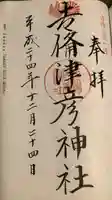 奉拝
吉備津彦神社
平成二十四年十二月二十四日